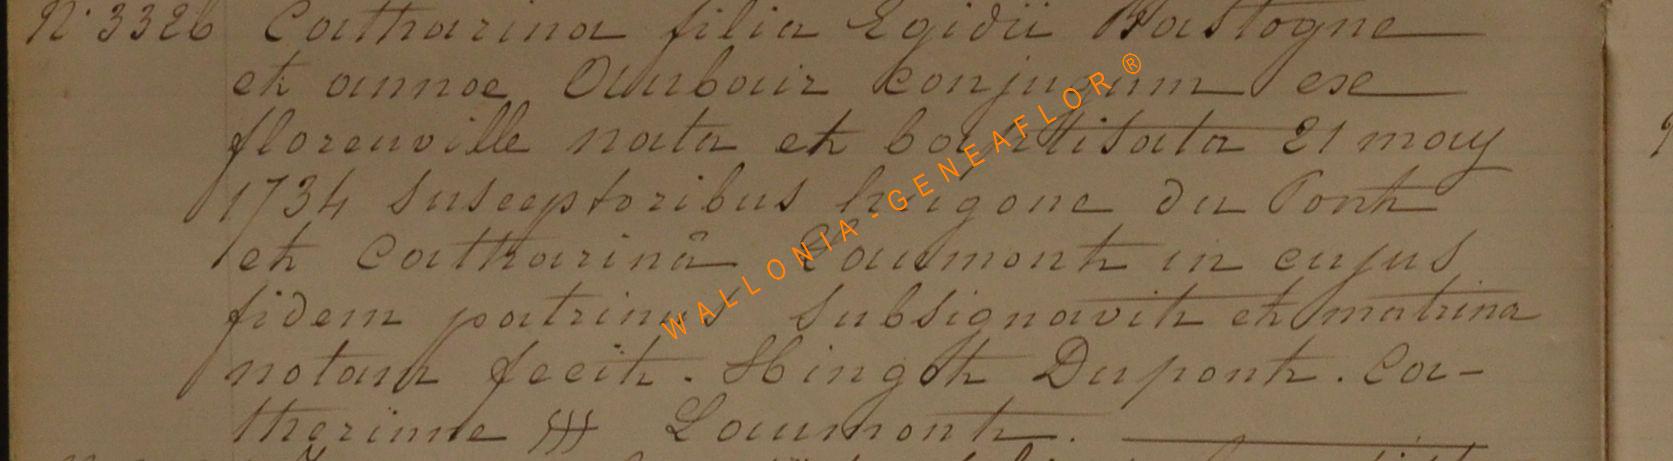 N° 3326 Catharina filia Egidii Bastogne
et annae Oubair conjugum ex
florenville nata et baptisata 21 may
1734 susceptoribus huigone du Pont
et Catharinâ Laumont in cujus
fidem patrinus subsignavit et matrina
notam fecit. Hingot Dupont. Ca-
therinne Laumont.
WALLONIA-GENEAFLOR®